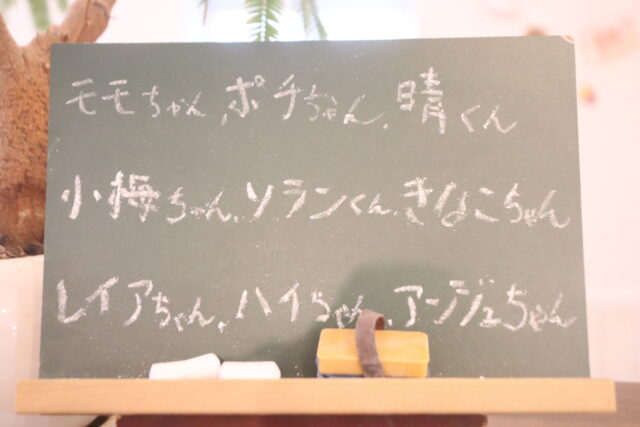 モモちゃん,ポチちゃん,晴くん
小梅ちゃん,ソランくん,きなこちゃん
レイアちゃん,ハイちゃん,アージュちゃん